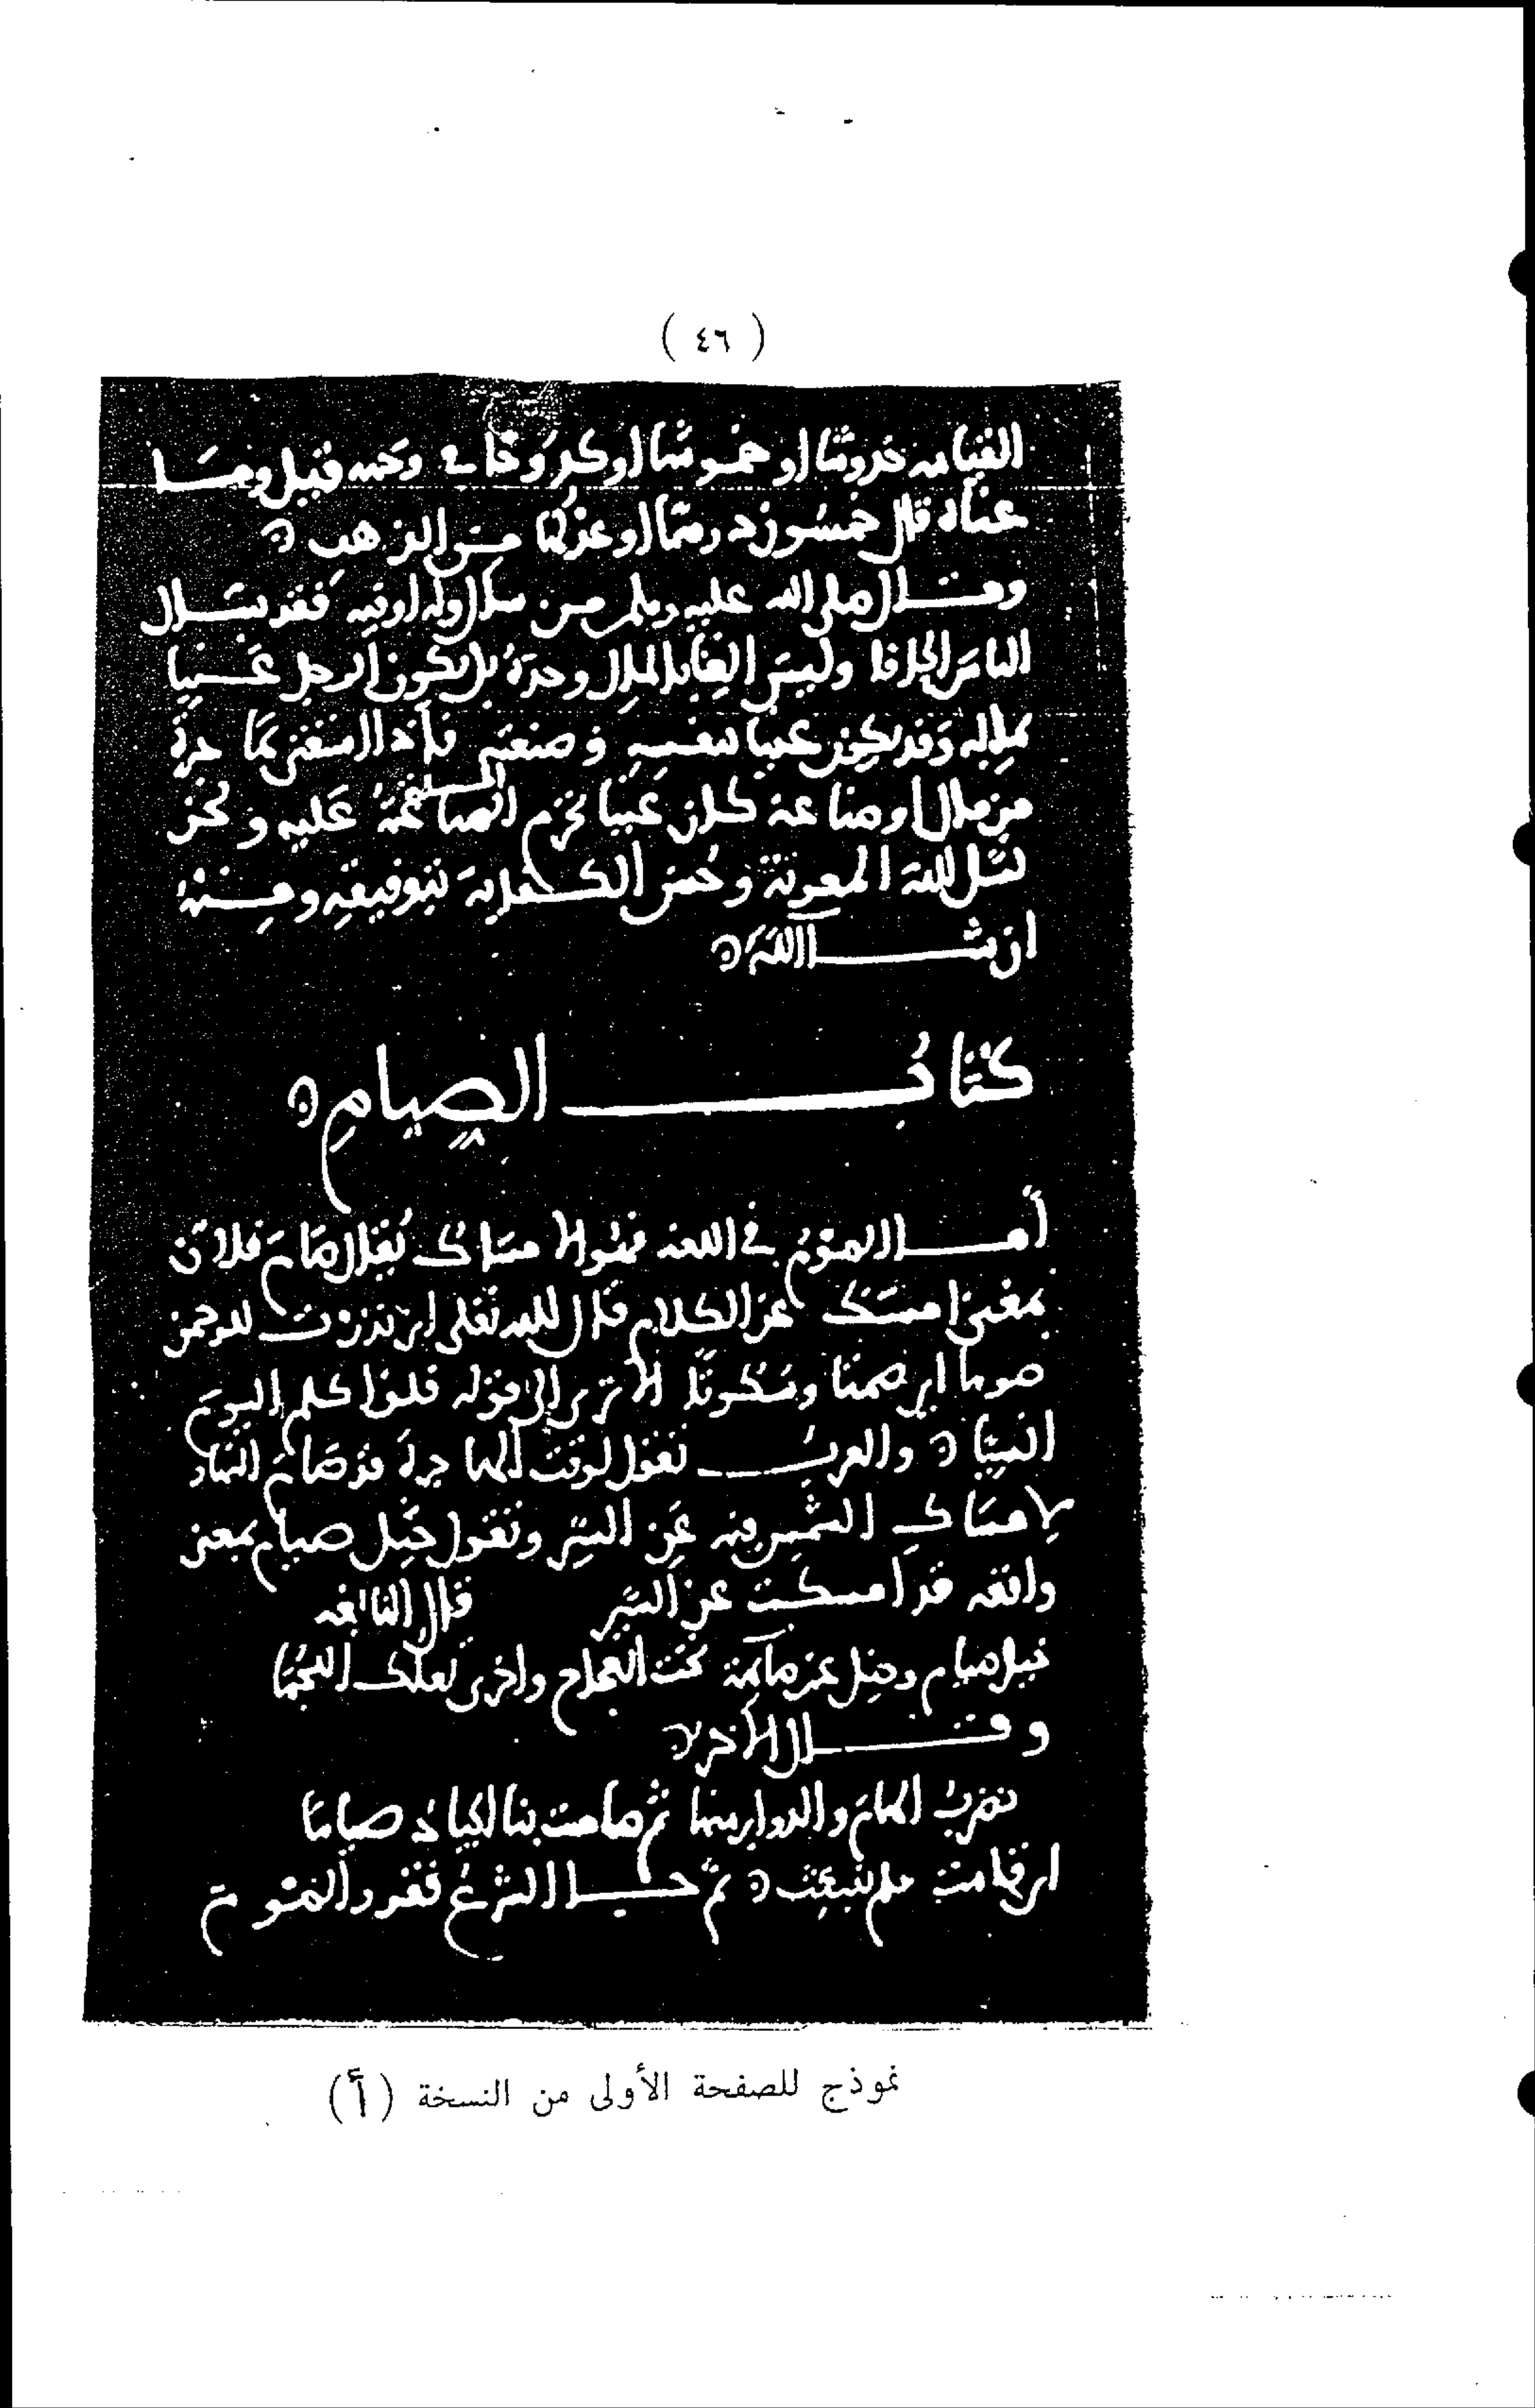 ( ٤٦ )
القيامة خدوشا او خموشا او كدوحا في وجهه قيل وما
غناه قال خمسون درهما او عدلها من الذهب
وقال صلى الله عليه وسلم من سال وله اوقية فقد سال
الناس الحافا وليس الغنا بالمال وحده بل يكون الرجل غنيا
بماله وقد يكون غنيا بنفسه و صنعته فاذا استغنى بما حده
من مال او صناعة كان غنيا تحرم عليه و نحن
نسل الله المعونة وحسن الكفاية بتوفيقه ومنه
ان شا الله
كتاب الصيام
أما الصوم في اللغة فهو الامساك يقال صام فلان
بمعنى امسك عن الكلام قال الله تعلى اني نذرت للرحمن
صوما اي صمتا وسكوتا الا ترى الى قوله فلن اكلم اليوم
انسيا والعرب تقول لوقت الهاجرة قد صام النهار
لامساك الشمس فيه عن السير وتقول خيل صيام بمعنى
واقفه قد امسكت عن السير قال النابغه
خيل صيام وخيل غير صائمة تحت العجاج واخرى تعلك اللجما
وقال الاخر
نضرب الهام والدوابر منها ثم صامت بنا الجياد صياما
اي قامت فلم تنبعث ثم جا الشرع فقرر الصوم
نموذج للصفحة الأولى من النسخة (أ)